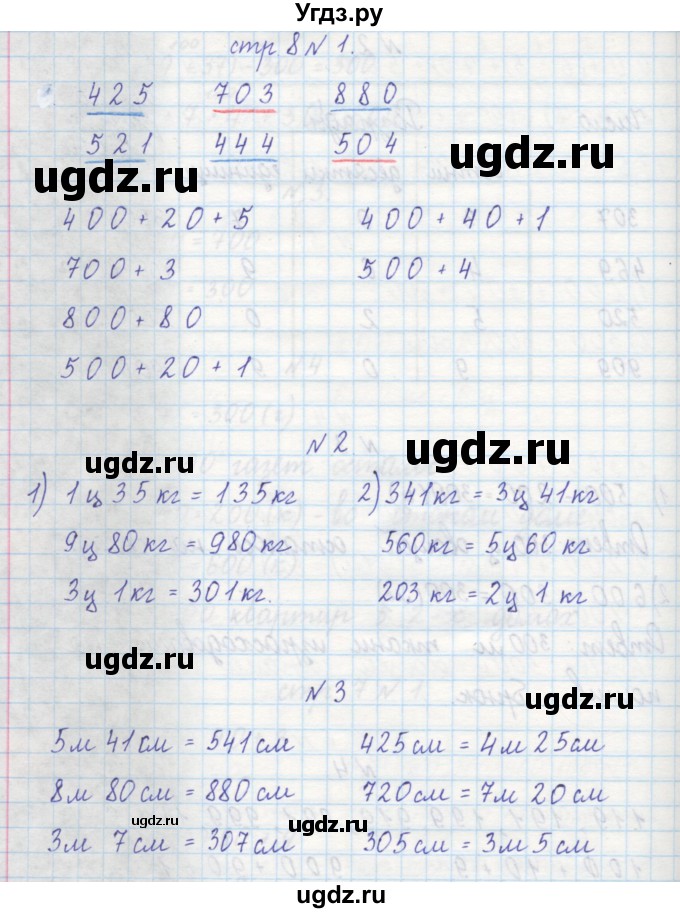 Угдз.ру
стр 8 N 1.
425 703 880
521 444 504
ugdz.ru ugdz.ru
400 + 20 + 5 400 + 40 + 1
700 + 3 500 + 4
800 + 80
500 + 20 + 1
N 2
ugdz.ru ugdz.ru
1) 1 ц 35 кг = 135 кг 2) 341 кг = 3 ц 41 кг
9 ц 80 кг = 980 кг 560 кг = 5 ц 60 кг
3 ц 1 кг = 301 кг. 203 кг = 2 ц 1 кг
ugdz.ru ugdz.ru
N 3
5 м 41 см = 541 см 425 см = 4 м 25 см
8 м 80 см = 880 см 720 см = 7 м 20 см
ugdz.ru ugdz.ru
3 м 7 см = 307 см 305 см = 3 м 5 см
ugdz.ru